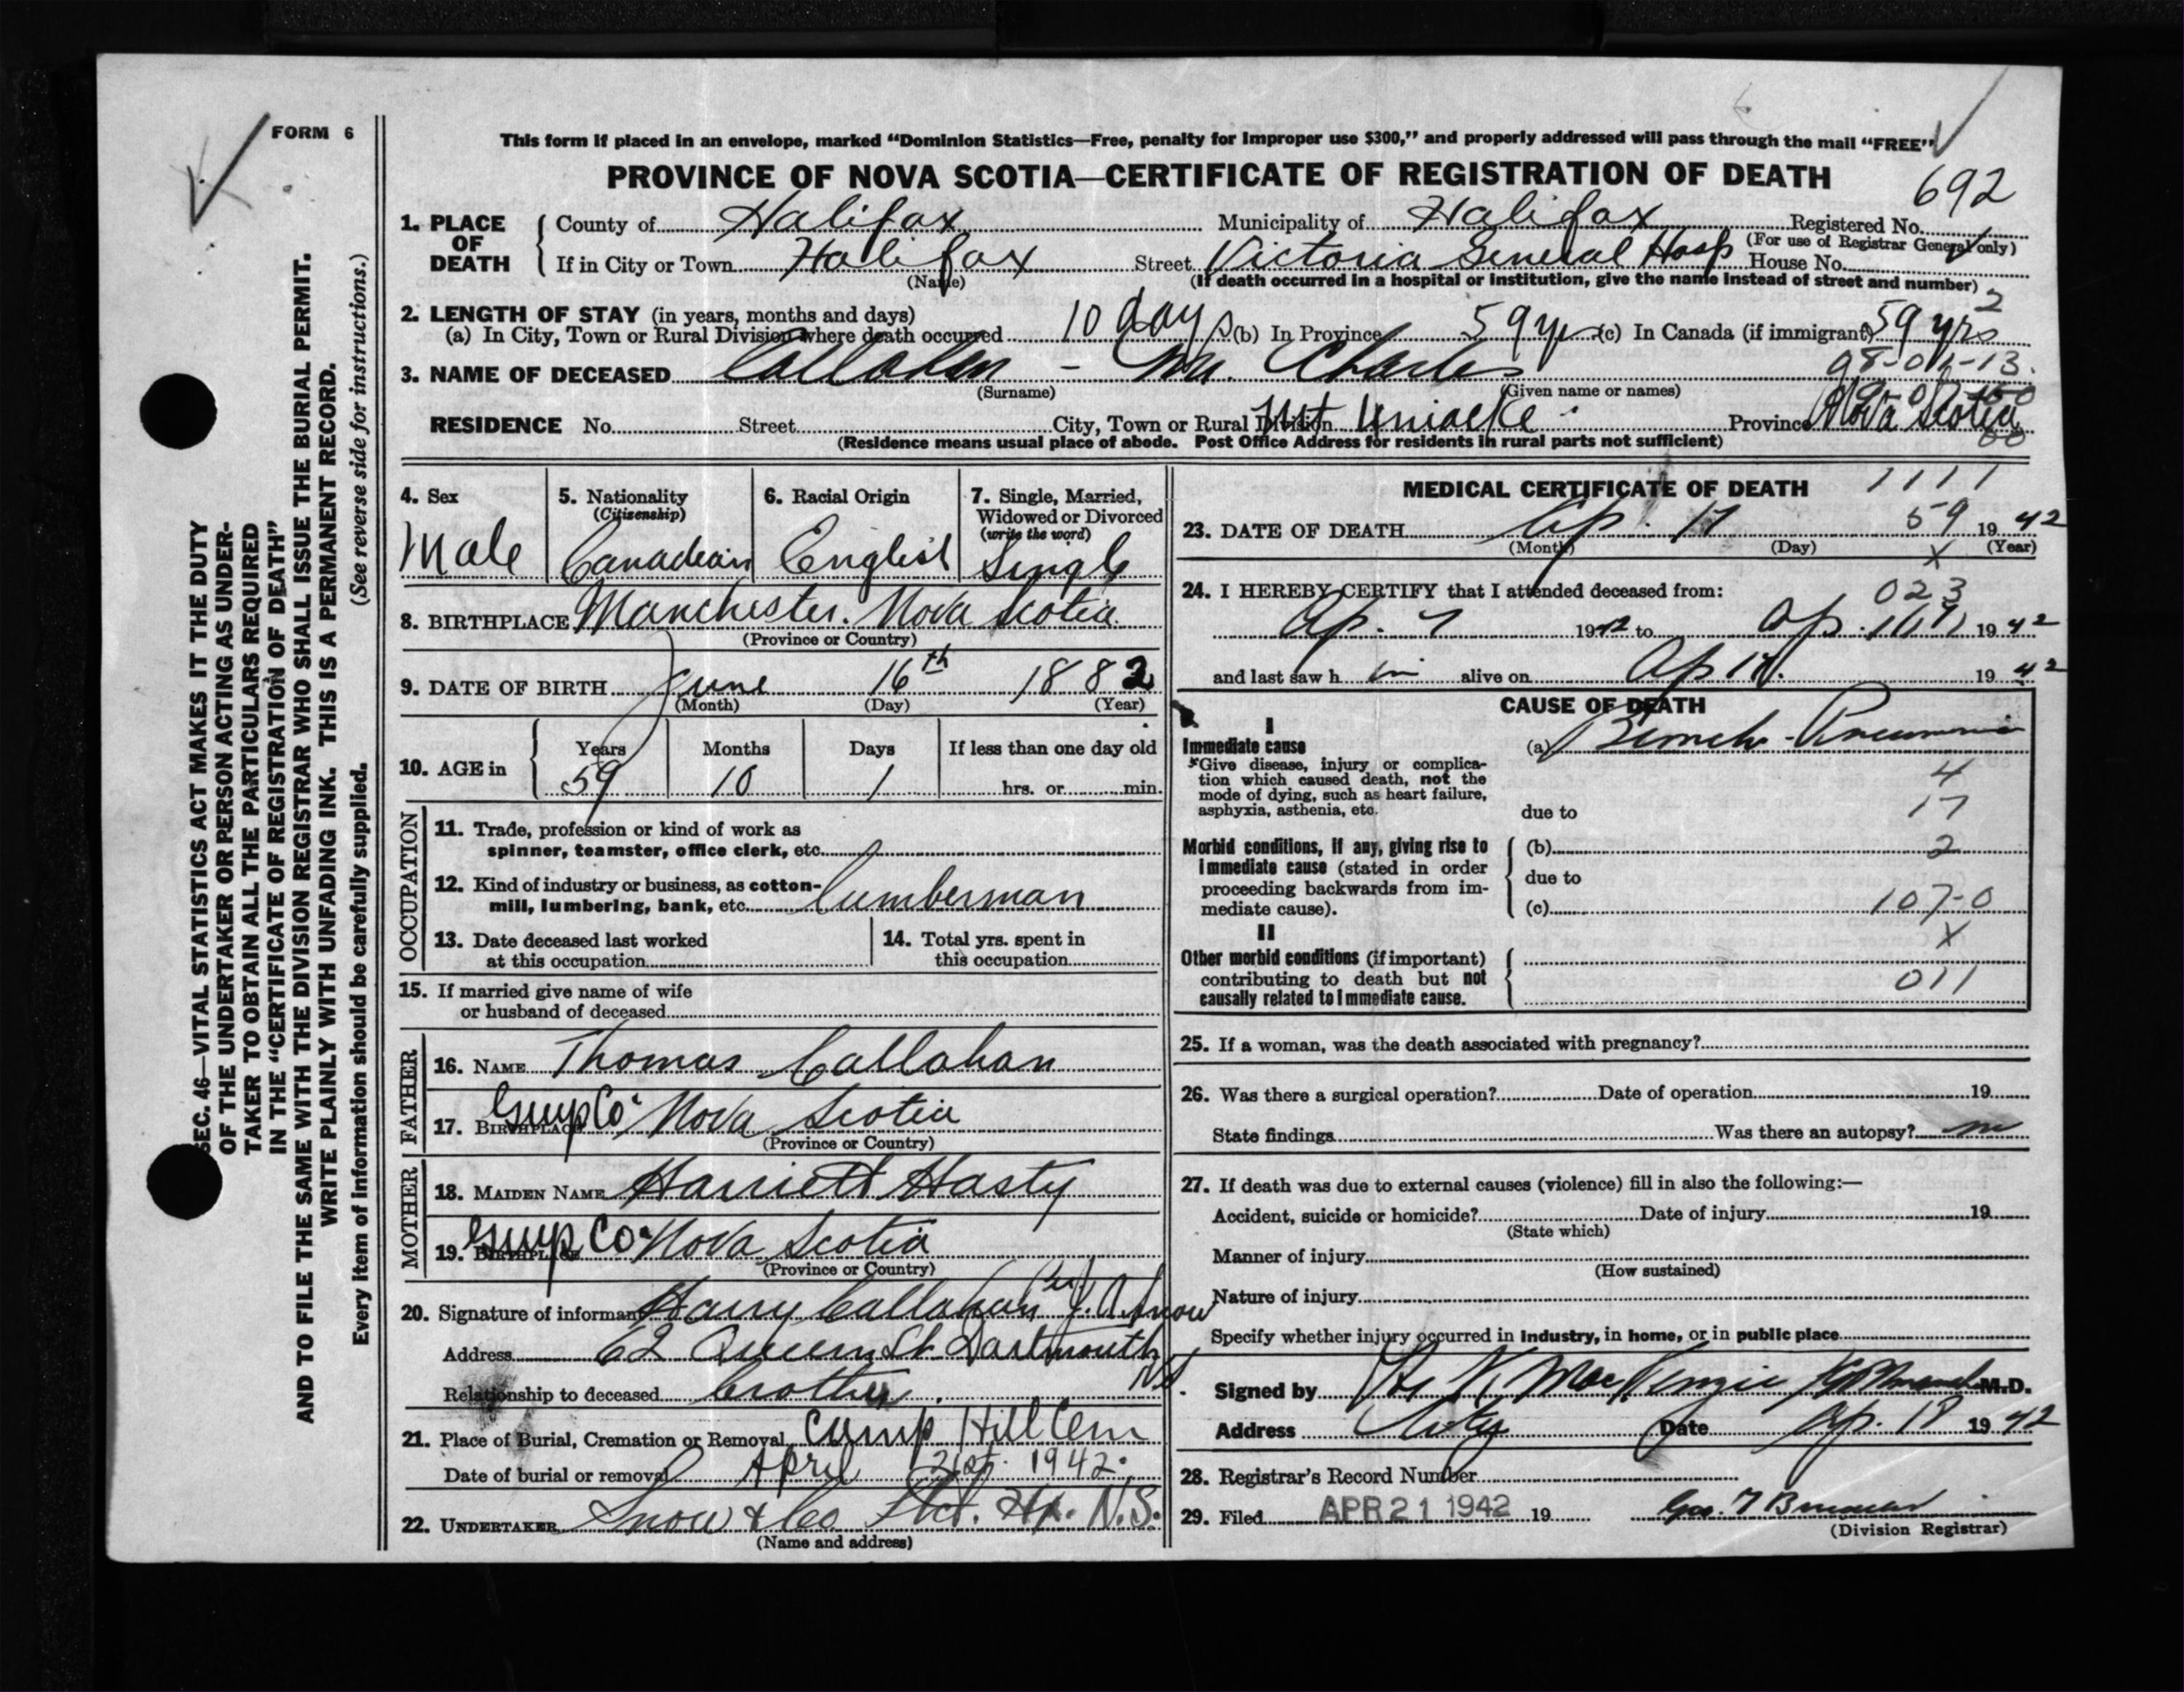 FORM 6
This form if placed in an envelope, marked “Dominion Statistics—Free, penalty for improper use $300,” and properly addressed will pass through the mail “FREE”
PROVINCE OF NOVA SCOTIA—CERTIFICATE OF REGISTRATION OF DEATH
692
1. PLACE OF DEATH
County of Halifax Municipality of Halifax Registered No.
(For use of Registrar General only)
If in City or Town Halifax Street Victoria General Hosp House No.
(Name) (If death occurred in a hospital or institution, give the name instead of street and number)
2
2. LENGTH OF STAY (in years, months and days)
(a) In City, Town or Rural Division where death occurred 10 days (b) In Province 59 yrs (c) In Canada (if immigrant) 59 yrs
98-01-13.
3. NAME OF DECEASED Callahan - Mr. Charles
(Surname) (Given name or names)
RESIDENCE No. Street City, Town or Rural Division Mt Uniacke Province Nova Scotia
(Residence means usual place of abode. Post Office Address for residents in rural parts not sufficient)
4. Sex
Male
5. Nationality
(Citizenship)
Canadian
6. Racial Origin
English
7. Single, Married,
Widowed or Divorced
(write the word)
Single
8. BIRTHPLACE Manchester. Nova Scotia.
(Province or Country)
9. DATE OF BIRTH June 16th 1882
(Month) (Day) (Year)
10. AGE in
Years Months Days If less than one day old
59 10 1 hrs. or min.
OCCUPATION
11. Trade, profession or kind of work as
spinner, teamster, office clerk, etc.
12. Kind of industry or business, as cotton-
mill, lumbering, bank, etc. Lumberman
13. Date deceased last worked
at this occupation
14. Total yrs. spent in
this occupation
15. If married give name of wife
or husband of deceased
FATHER
16. NAME Thomas Callahan
17. BIRTHPLACE Guys Co. Nova Scotia
(Province or Country)
MOTHER
18. MAIDEN NAME Harriett Hasty
19. BIRTHPLACE Guys Co. Nova Scotia
(Province or Country)
20. Signature of informant Harry Callahan per J. A. Snow
Address 62 Queen St. Dartmouth N.S.
Relationship to deceased brother.
21. Place of Burial, Cremation or Removal Camp Hill Cem
Date of burial or removal April 21st. 1942.
22. UNDERTAKER Snow & Co Ltd. Hx. N.S.
(Name and address)
MEDICAL CERTIFICATE OF DEATH
1111
23. DATE OF DEATH Ap. 17 59 19 42
(Month) (Day) (Year)
X
24. I HEREBY CERTIFY that I attended deceased from:
023
Ap. 7 1942 to Ap. 17 19 42
and last saw h im alive on Ap 17. 19 42
CAUSE OF DEATH
I
Immediate cause
*Give disease, injury or complica-
tion which caused death, not the
mode of dying, such as heart failure,
asphyxia, asthenia, etc.
(a) Broncho-Pneumonia
4
due to 17
Morbid conditions, if any, giving rise to
immediate cause (stated in order
proceeding backwards from im-
mediate cause).
(b) 2
due to
(c) 107-0
II
X
Other morbid conditions (if important)
contributing to death but not
causally related to immediate cause.
011
25. If a woman, was the death associated with pregnancy?
26. Was there a surgical operation? Date of operation 19
State findings Was there an autopsy? no
27. If death was due to external causes (violence) fill in also the following:—
Accident, suicide or homicide? Date of injury 19
(State which)
Manner of injury
(How sustained)
Nature of injury
Specify whether injury occurred in industry, in home, or in public place
Signed by MacKenzie M.D.
Address Date Ap. 18 19 42
28. Registrar's Record Number
29. Filed APR 21 1942 19
(Division Registrar)
SEC. 46—VITAL STATISTICS ACT MAKES IT THE DUTY
OF THE UNDERTAKER OR PERSON ACTING AS UNDER-
TAKER TO OBTAIN ALL THE PARTICULARS REQUIRED
IN THE “CERTIFICATE OF REGISTRATION OF DEATH”
AND TO FILE THE SAME WITH THE DIVISION REGISTRAR WHO SHALL ISSUE THE BURIAL PERMIT.
WRITE PLAINLY WITH UNFADING INK. THIS IS A PERMANENT RECORD.
Every item of information should be carefully supplied. (See reverse side for instructions.)